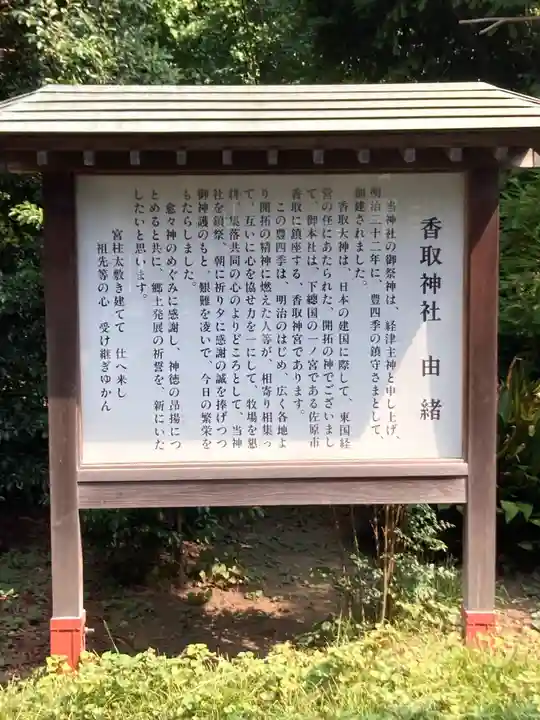 香取神社 由緒
当神社の御祭神は、経津主神と申し上げ、
明治二十二年に、豊四季の鎮守さまとして、
創建されました。
香取大神は、日本の建国に際して、東国経
営の任にあたられた、開拓の神でございまし
て、御本社は、下總国の一ノ宮である佐原市
香取に鎮座する、香取神宮であります。
この豊四季は、明治のはじめ、広く各地よ
り開拓の精神に燃えた人等が、相寄り相集っ
て、互いに心を協せ力を一にして、牧場を懇
耕し集落共同の心のよりどころとして、当神
社を鎮祭、朝に祈り夕に感謝の誠を捧げつつ
御神護のもと、艱難を凌いで、今日の繁栄を
もたらしました。
愈々神のめぐみに感謝し、神徳の昂揚につ
とめると共に、郷土発展の祈誓を、新にいた
したいと思います。
宮柱太敷き建てて 仕へ来し
祖先等の心 受け継ぎゆかん